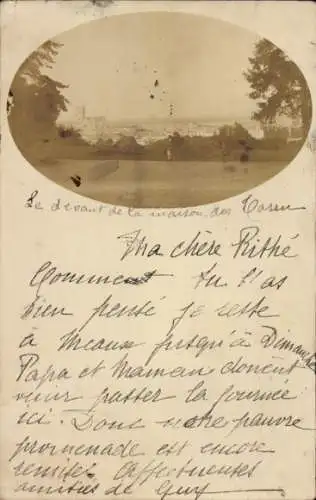 Le devant de la maison des
Ma chère
Comment tu l'as
bien pensé je reste
à Meaux jusqu'à Dimanche
Papa et Maman doivent
venir passer la journée
ici. Donc notre pauvre
promenade est encore
remise. Affectueuses
amitiés de Guy